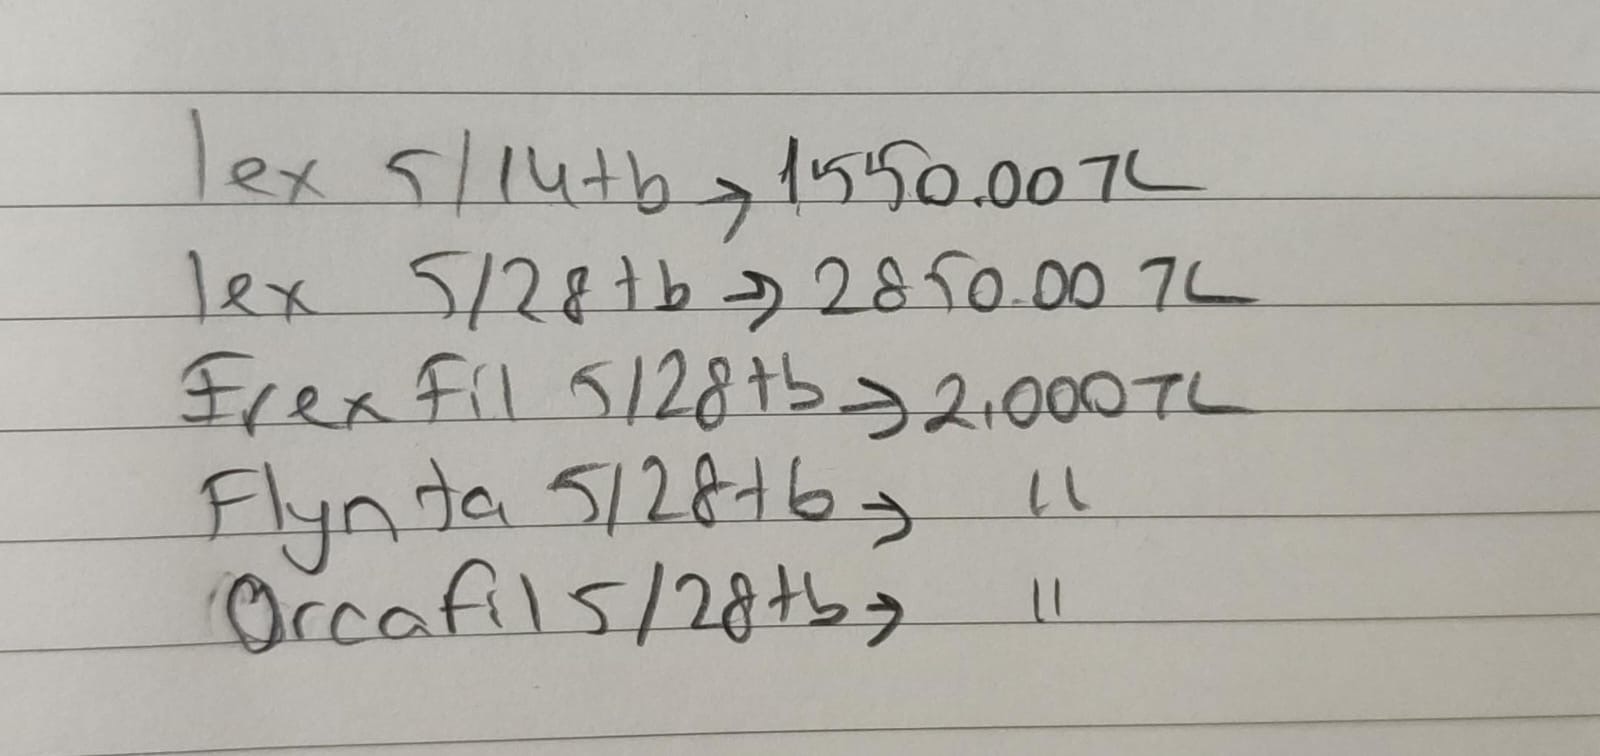 lex 5/14tb → 1550.00 TL
lex 5/28tb → 2850.00 TL
Frex Fil 5/28tb → 2.000 TL
Flynta 5/28tb → "
Orcafil 5/28tb → "